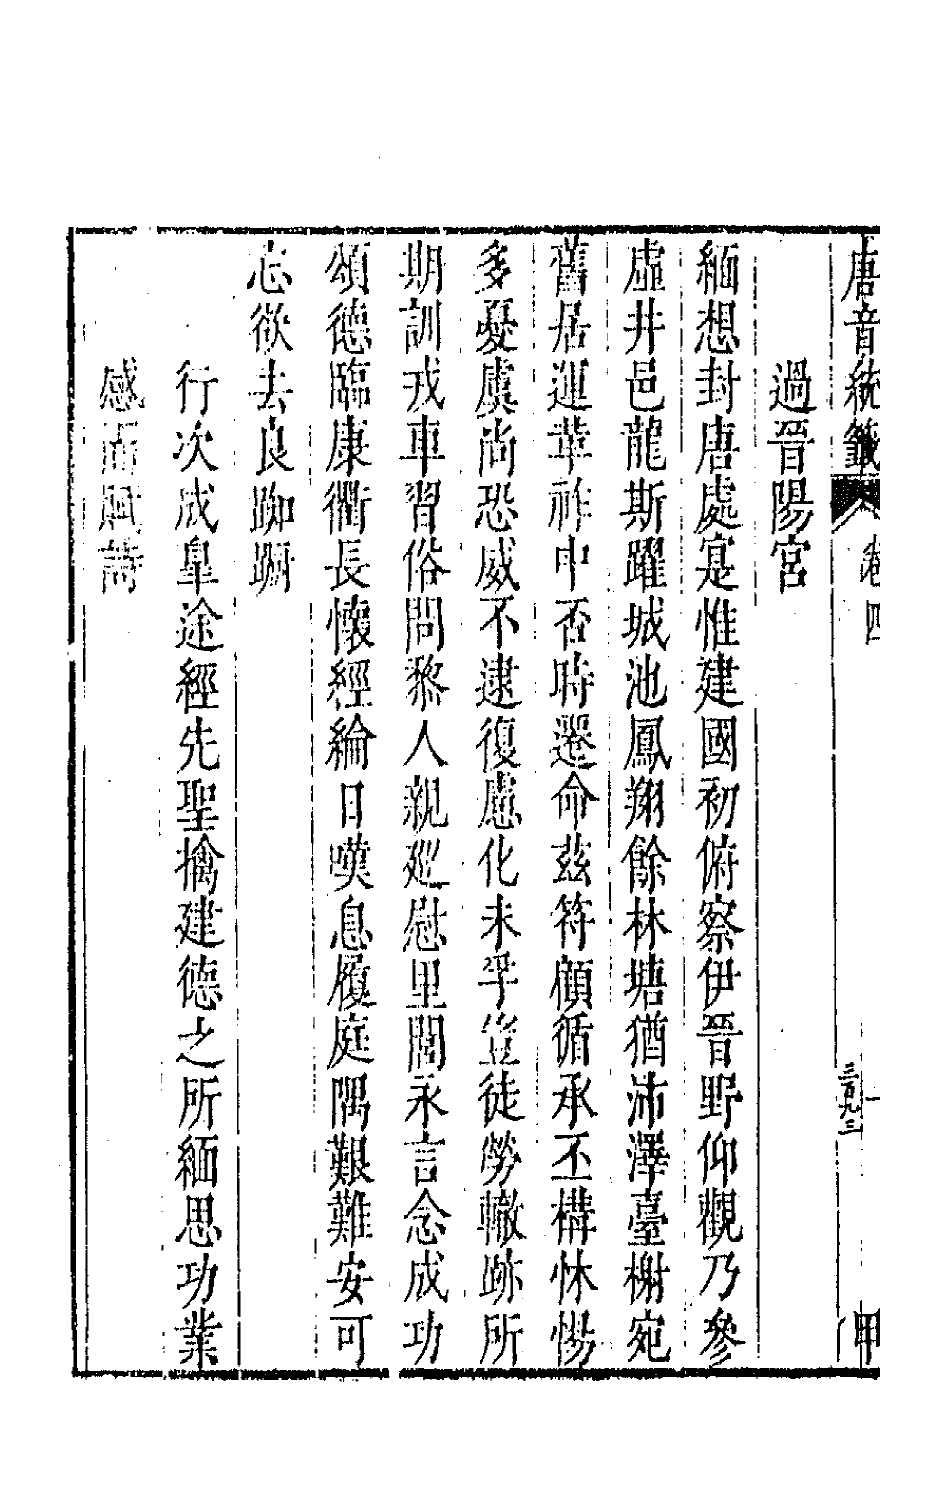 唐音統籖
卷四
一
三百九三
甲
過晉陽宮
緬想封唐處寔惟建國初俯察伊晉野仰觀乃參
虛井邑龍斯躍城池鳳翔餘林塘猶沛澤臺榭宛
舊居運革祚中否時遷命茲符顧循承丕構怵惕
多憂虞尚恐威不逮復慮化未孚豈徒勞轍跡所
期訓戎車習俗問黎人親巡慰里閭永言念成功
頌德臨康衢長懷經綸日嘆息履庭隅艱難安可
忘欲去良踟躕
行次成皐途經先聖擒建德之所緬思功業
感而賦詩